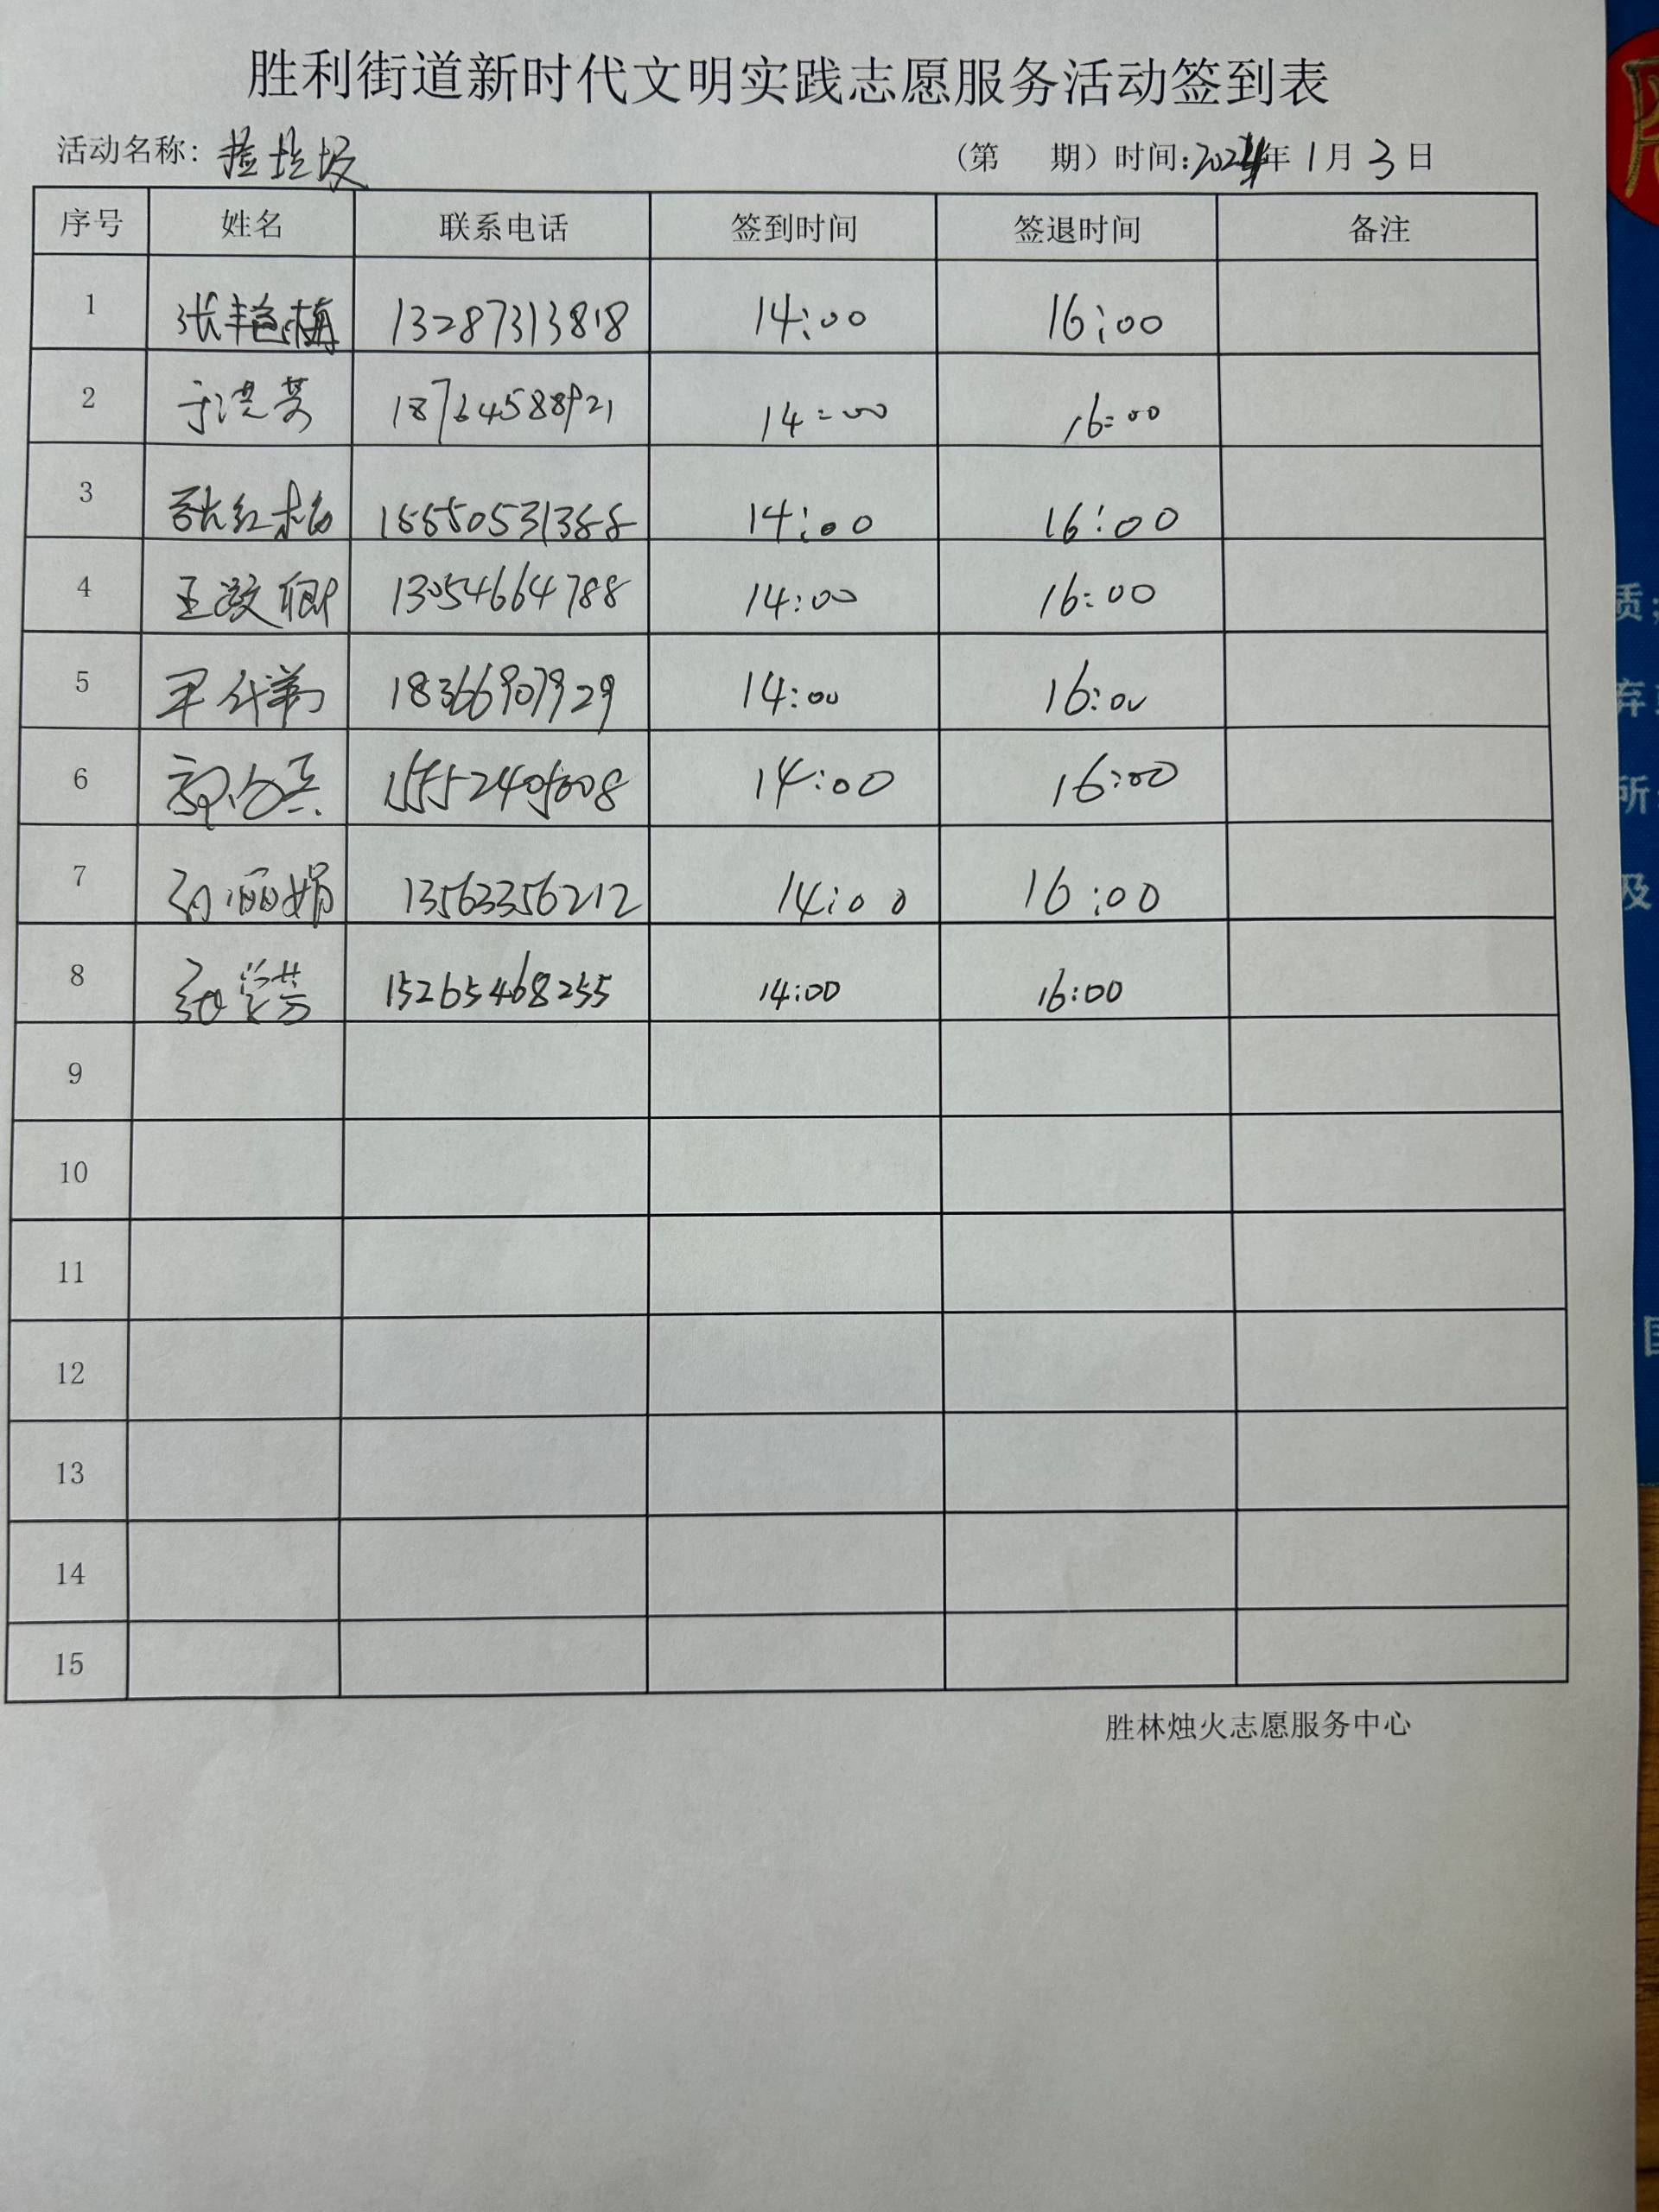 胜利街道新时代文明实践志愿服务活动签到表
活动名称：捡垃圾 （第 期）时间：2024年1月3日
序号 姓名 联系电话 签到时间 签退时间 备注
1 张艳梅 13287313818 14:00 16:00
2 于洪芳 18764588921 14:00 16:00
3 张红梅 14:00 16:00
4 王 卿 13054664788 14:00 16:00
5 18366907929 14:00 16:00
6 14:00 16:00
7 孙丽娟 13563356212 14:00 16:00
8 15265468255 14:00 16:00
9
10
11
12
13
14
15
胜林烛火志愿服务中心
质
弃
所
及